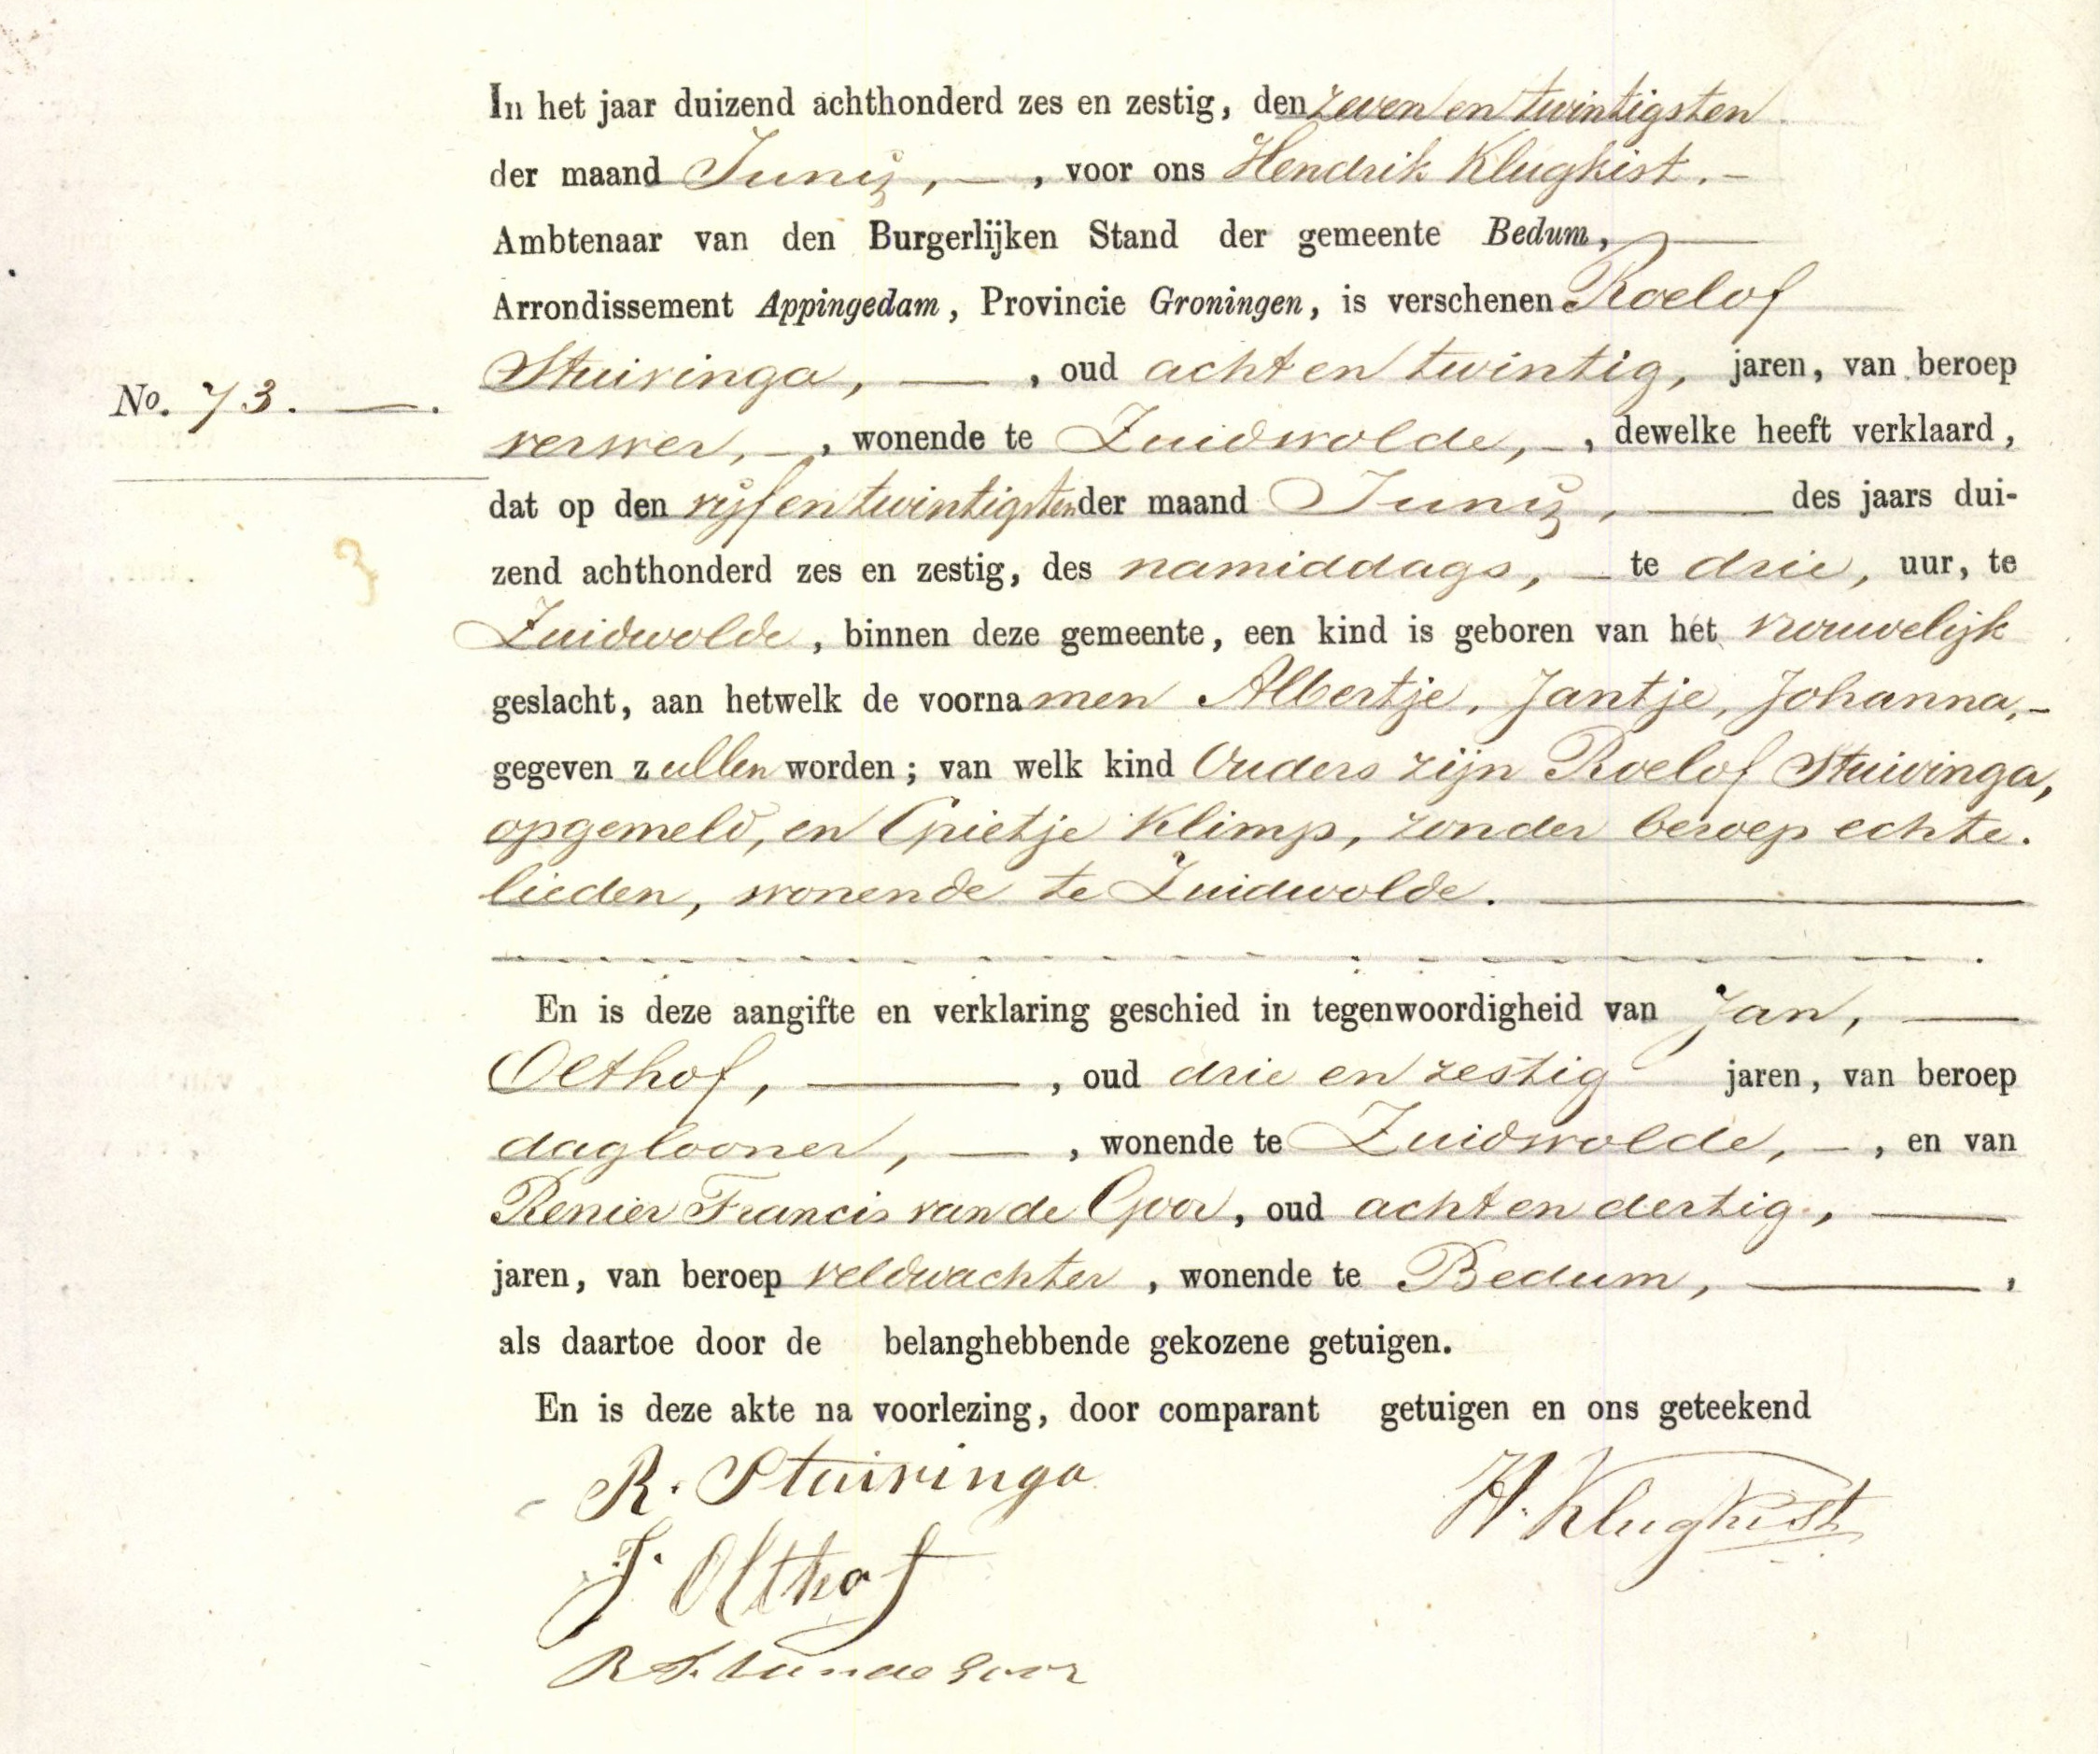 In het jaar duizend achthonderd zes en zestig, den zeven en twintigsten
der maand Junij, —, voor ons Hendrik Klughist. —
Ambtenaar van den Burgerlijken Stand der gemeente Bedum, —
Arrondissement Appingedam, Provincie Groningen, is verschenen Roelof
Stuivinga, — , oud acht en twintig, jaren, van beroep
No. 73. — .
verwer, — , wonende te Zuidwolde, — , dewelke heeft verklaard,
dat op den vijf en twintigsten der maand Junij, — des jaars dui-
zend achthonderd zes en zestig, des namiddags, — te drie, uur, te
Zuidwolde, binnen deze gemeente, een kind is geboren van het vrouwelijk
geslacht, aan hetwelk de voornamen Albertje, Jantje, Johanna, —
gegeven zullen worden; van welk kind Ouders zijn Roelof Stuivinga,
opgemeld, en Grietje Klimp, zonder beroep echte.
lieden, wonende te Zuidwolde. —
En is deze aangifte en verklaring geschied in tegenwoordigheid van Jan, —
Olthof, — , oud drie en zestig jaren, van beroep
daglooner, — , wonende te Zuidwolde, — , en van
Renier Francis van de Goor, oud acht en dertig, —
jaren, van beroep veldwachter, wonende te Bedum, — ,
als daartoe door de belanghebbende gekozene getuigen.
En is deze akte na voorlezing, door comparant getuigen en ons geteekend
R. Stuivinga
H. Klughist
J. Olthof
R F. van de Goor